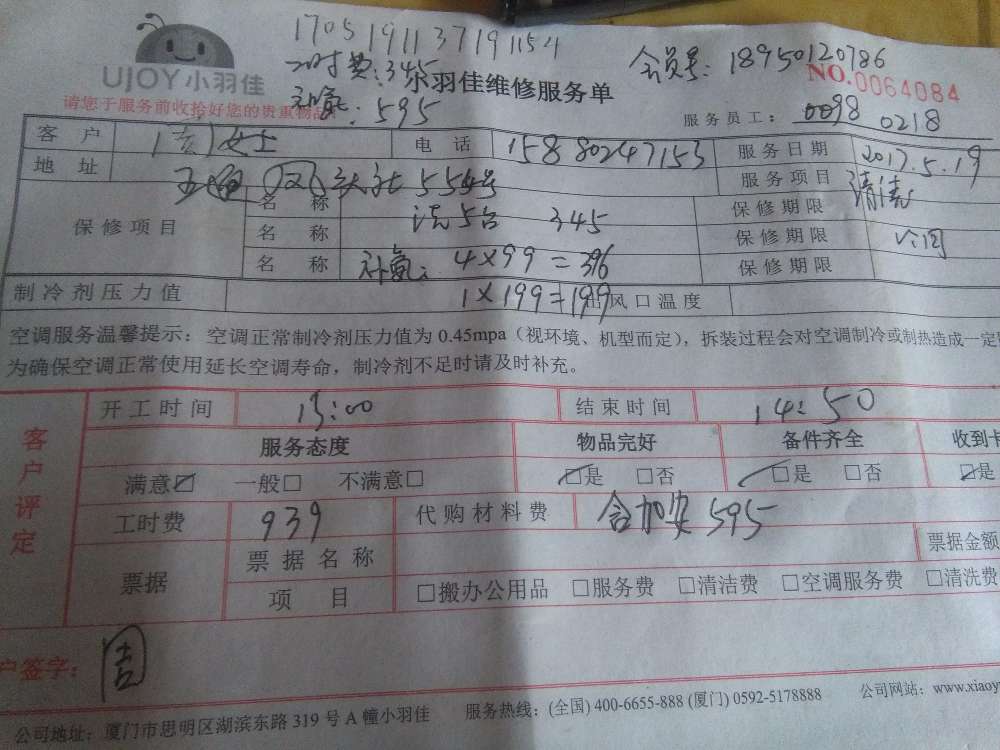 17051911371911154
会员号：18950120786
UJOY小羽佳
工时费：345
小羽佳维修服务单
NO.0064084
请您于服务前收拾好您的贵重物品
补氟：595
服务员工：0098 0218
客户 女士 电话 15880247153 服务日期 2017.5.19
地址 554号 服务项目 清洗
保修项目 名称 洗5台 345 保修期限
名称 保修期限
名称 补氟：4×99=396 保修期限
制冷剂压力值 1×199=199 出风口温度
空调服务温馨提示：空调正常制冷剂压力值为 0.45mpa（视环境、机型而定），拆装过程会对空调制冷或制热造成一定
为确保空调正常使用延长空调寿命，制冷剂不足时请及时补充。
客户评定
开工时间 13:00 结束时间 14:50
服务态度 物品完好 备件齐全 收到卡
满意☑ 一般□ 不满意□ ☑是 □否 ☑是 □否 ☑是
工时费 939 代购材料费 含加安595
票据 票据名称 票据金额
项目 □搬办公用品 □服务费 □清洁费 □空调服务费 □清洗费
户签字：周
公司地址：厦门市思明区湖滨东路 319 号 A 幢小羽佳 服务热线：(全国) 400-6655-888 (厦门) 0592-5178888 公司网站：www.xiaoy